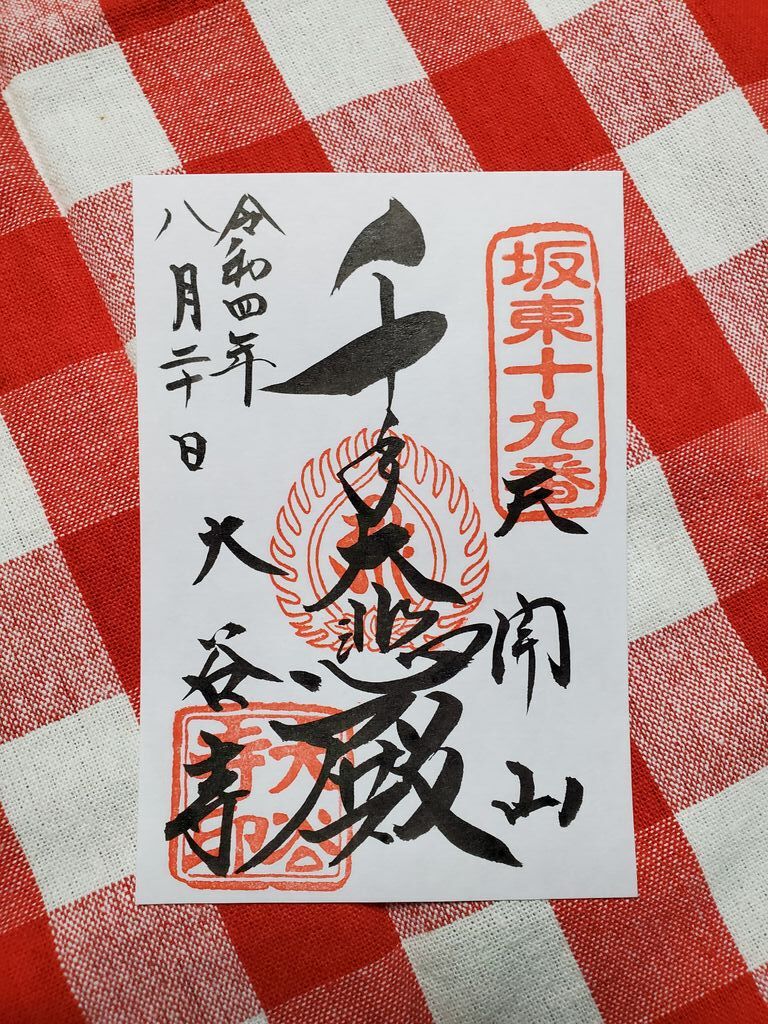 坂東十九番
天開山
千手大悲殿
令和四年
八月二十日
大谷寺
大谷寺印